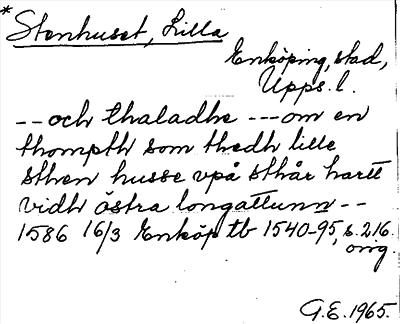 *
Stenhuset, Lilla
Enköping, stad,
Upps. l.
-- och thaladhe --- om en
thompth som thedh lille
sthen husse vpå sthår hartt
vidh östra longattunn --
1586 16/3 Enköp tb 1540-95, s. 216.
orig.
G.E. 1965.